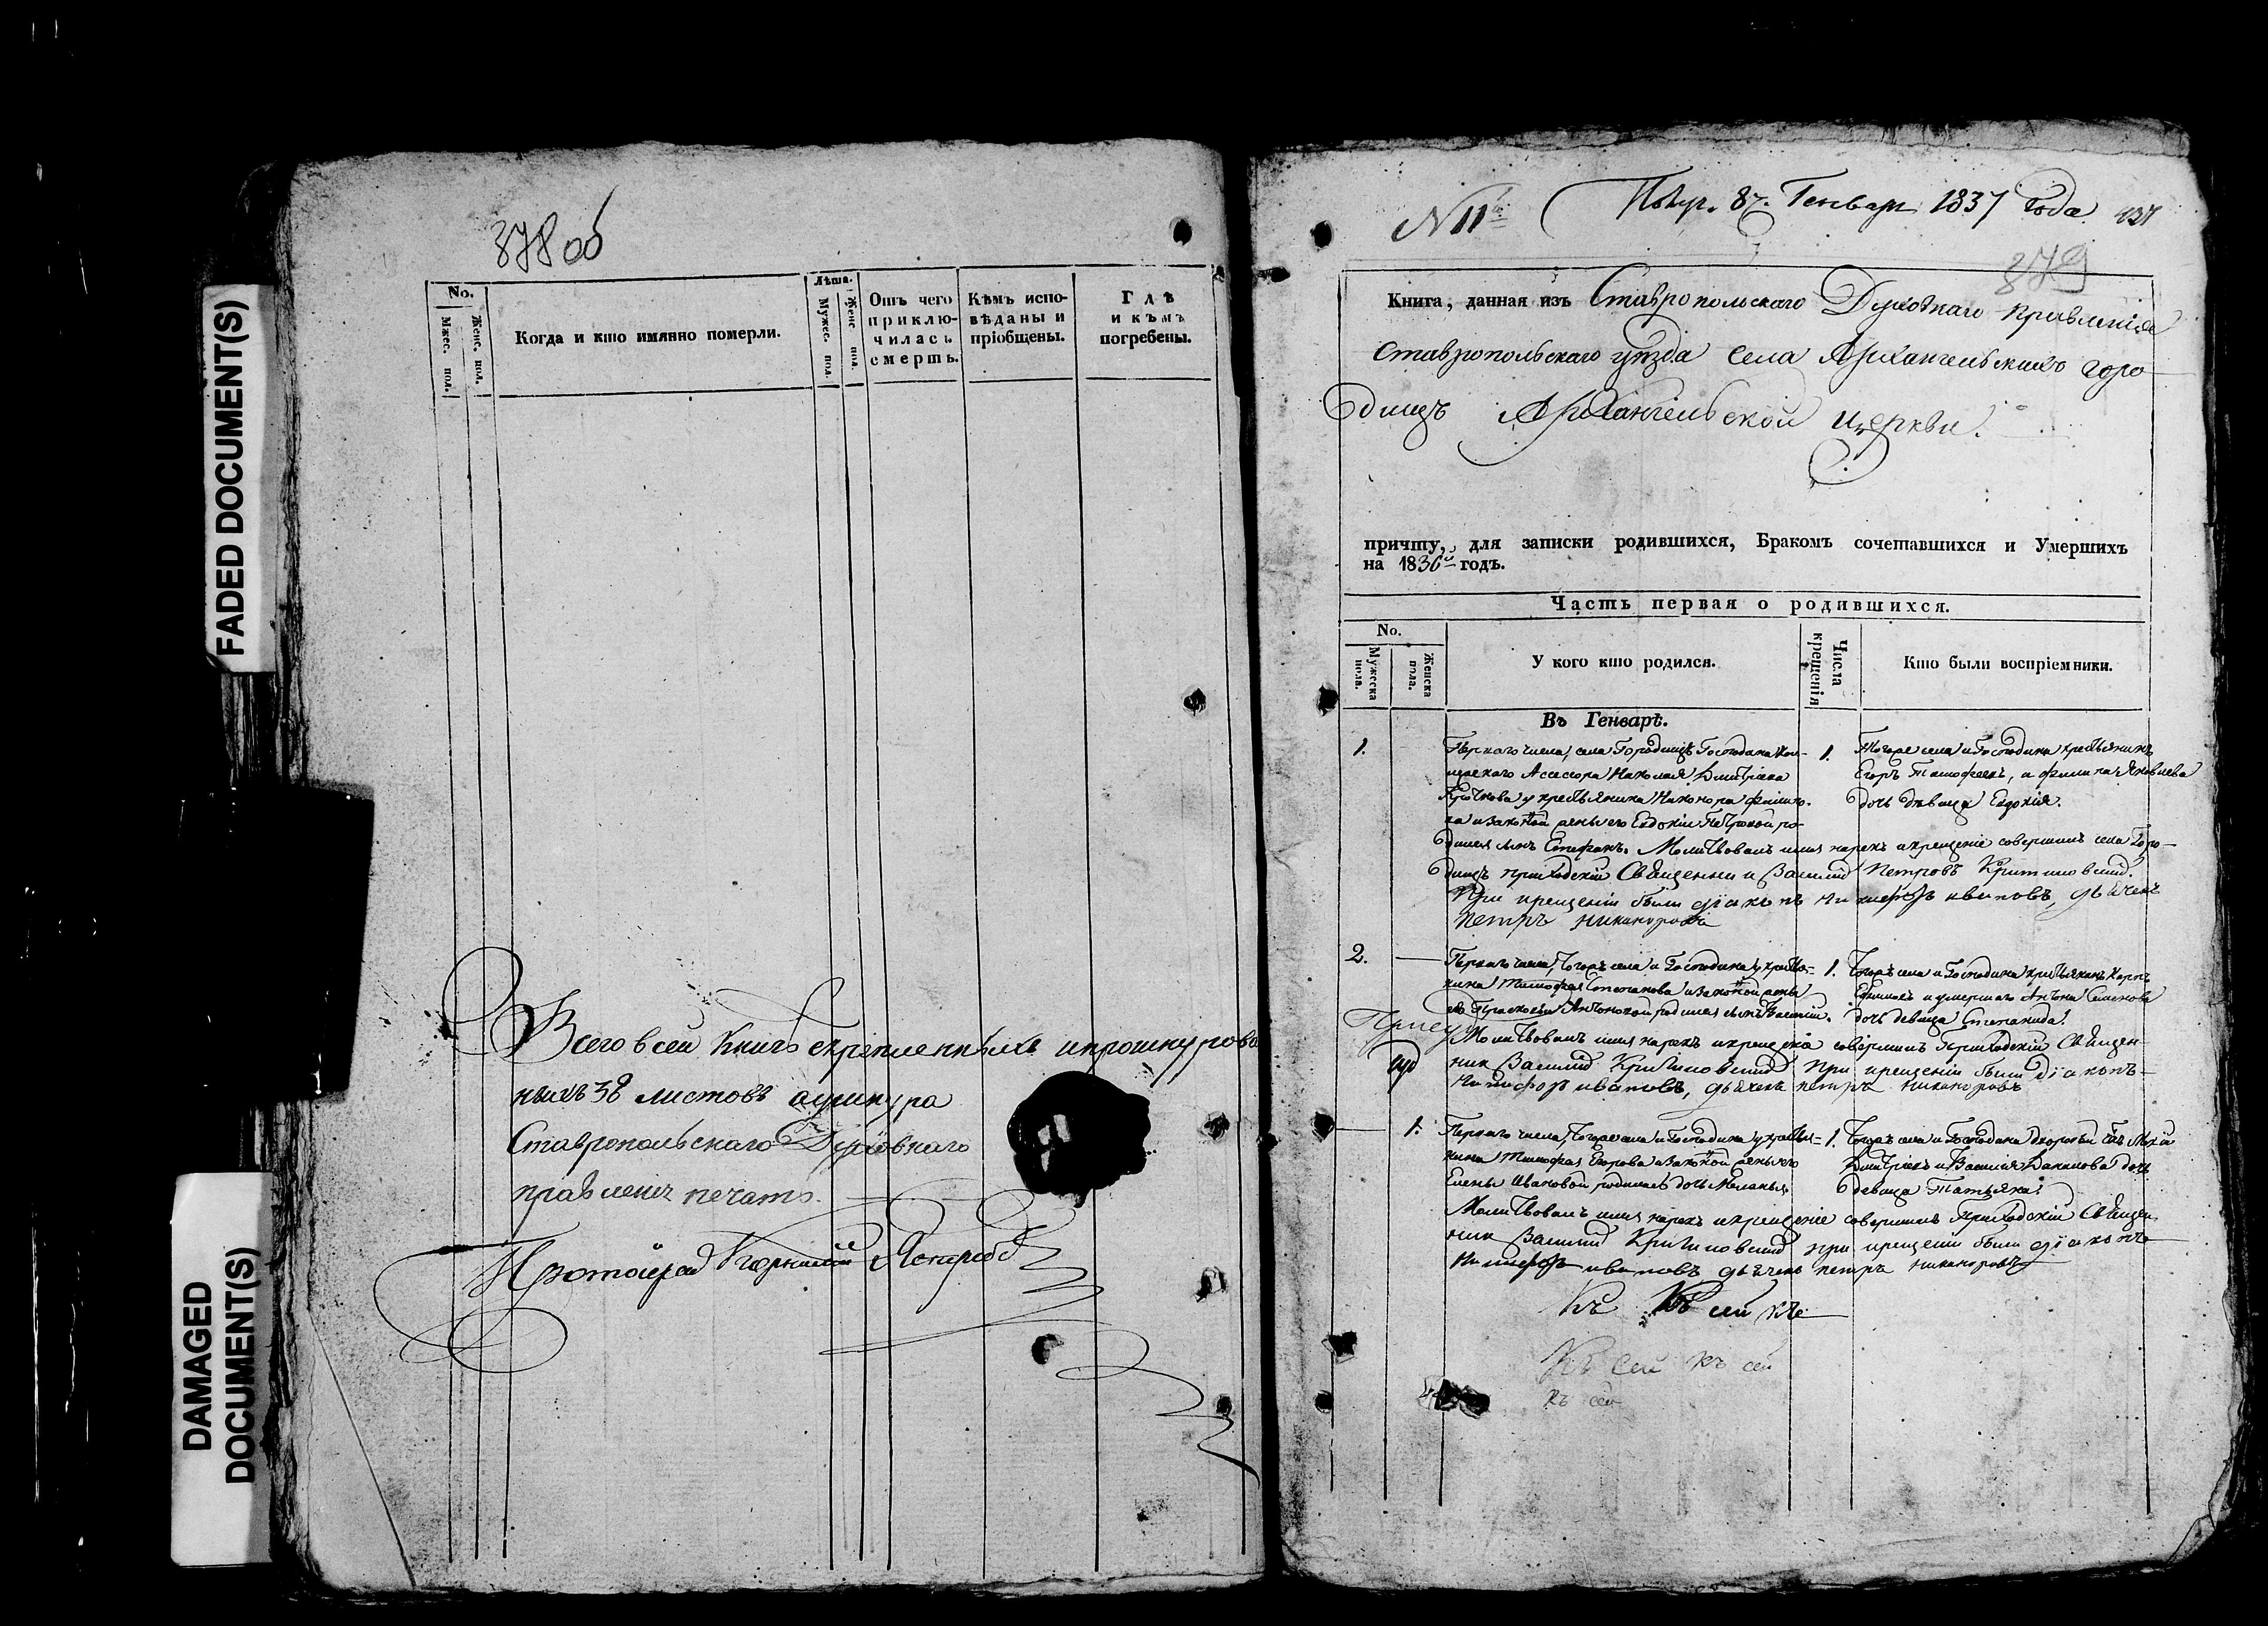 FADED DOCUMENT(S)
DAMAGED
DOCUMENT(S)
378 об
No.
Мжес. пол.
Женс. пол.
Когда и кто имянно померли.
Лѣта.
Мужес. пол.
Женс пол.
Отъ чего
приклю-
чилась
смерть.
Кѣмъ испо-
вѣданы и
пріобщены.
Гдѣ
и кѣмъ
погребены.
Всего в сей книгѣ скрепленныхъ и прошнурова
ныхъ 38 листовъ а у шнура
Ставропольскаго Духовнаго
правления печать.
Протоіерей
N 11
Генваря 1837 года
379
Книга, данная изъ Ставропольскаго Духовнаго правленія
Ставропольскаго уѣзда села Архангельскихъ горо
дищъ Архангельской церкви.
причту, для записки родившихся, Бракомъ сочетавшихся и Умершихъ
на 1836й годъ.
Часть первая о родившихся.
No.
Мужеска
пола.
Женска
пола.
У кого кто родился.
Числа
крещенія
Кто были воспріемники.
Въ Генварѣ.
1.
Перваго числа, села Городищъ Господина Кол-
лежскаго Асессора Николая Дмитріева
у крестьянина
и законной жены его Евдокіи Петровой ро-
дился сынъ Стефанъ. Молитвовалъ имя нарекъ и крещеніе совершилъ села Горо-
дищъ приходскій Священник Василій Петровъ
При крещеніи были діаконъ Никифоръ ивановъ, дьячекъ
петръ никаноровъ
1.
Тогоже села и Господина крестьянинъ
Егоръ Тимофеевъ, и Яковлева
дочь девица Евдокія.
2.
Перваго числа, тогожъ села и Господина у крестья-
нина Тимофея Степанова и законной жены
его Прасковьи Антоновой родился сынъ Василій.
Молитвовалъ имя нарекъ и крещеніе совершилъ Приходскій Священ-
ник Василий при крещеніи были діаконъ
Никифоръ ивановъ, дьячекъ петръ никаноровъ
1.
Тогожъ села и Господина крестьянинъ
и умершаго Семенова
дочь девица Степанида.
1.
Перваго числа, тогоже села и Господина у крестья-
нина Тимофея Егорова и законной жены его
Елены Ивановой родилась дочь Меланья.
Молитвовалъ имя нарекъ и крещеніе совершилъ Приходскій Священ
ник Василий при крещеніи были діаконъ
Никифоръ ивановъ дьячекъ петръ никаноровъ
1.
Тогожъ села и Господина
Дмитріевъ и Василія дочь
девица Татьяна.
Къ Къ сей
Къ сей къ сей
Къ сей